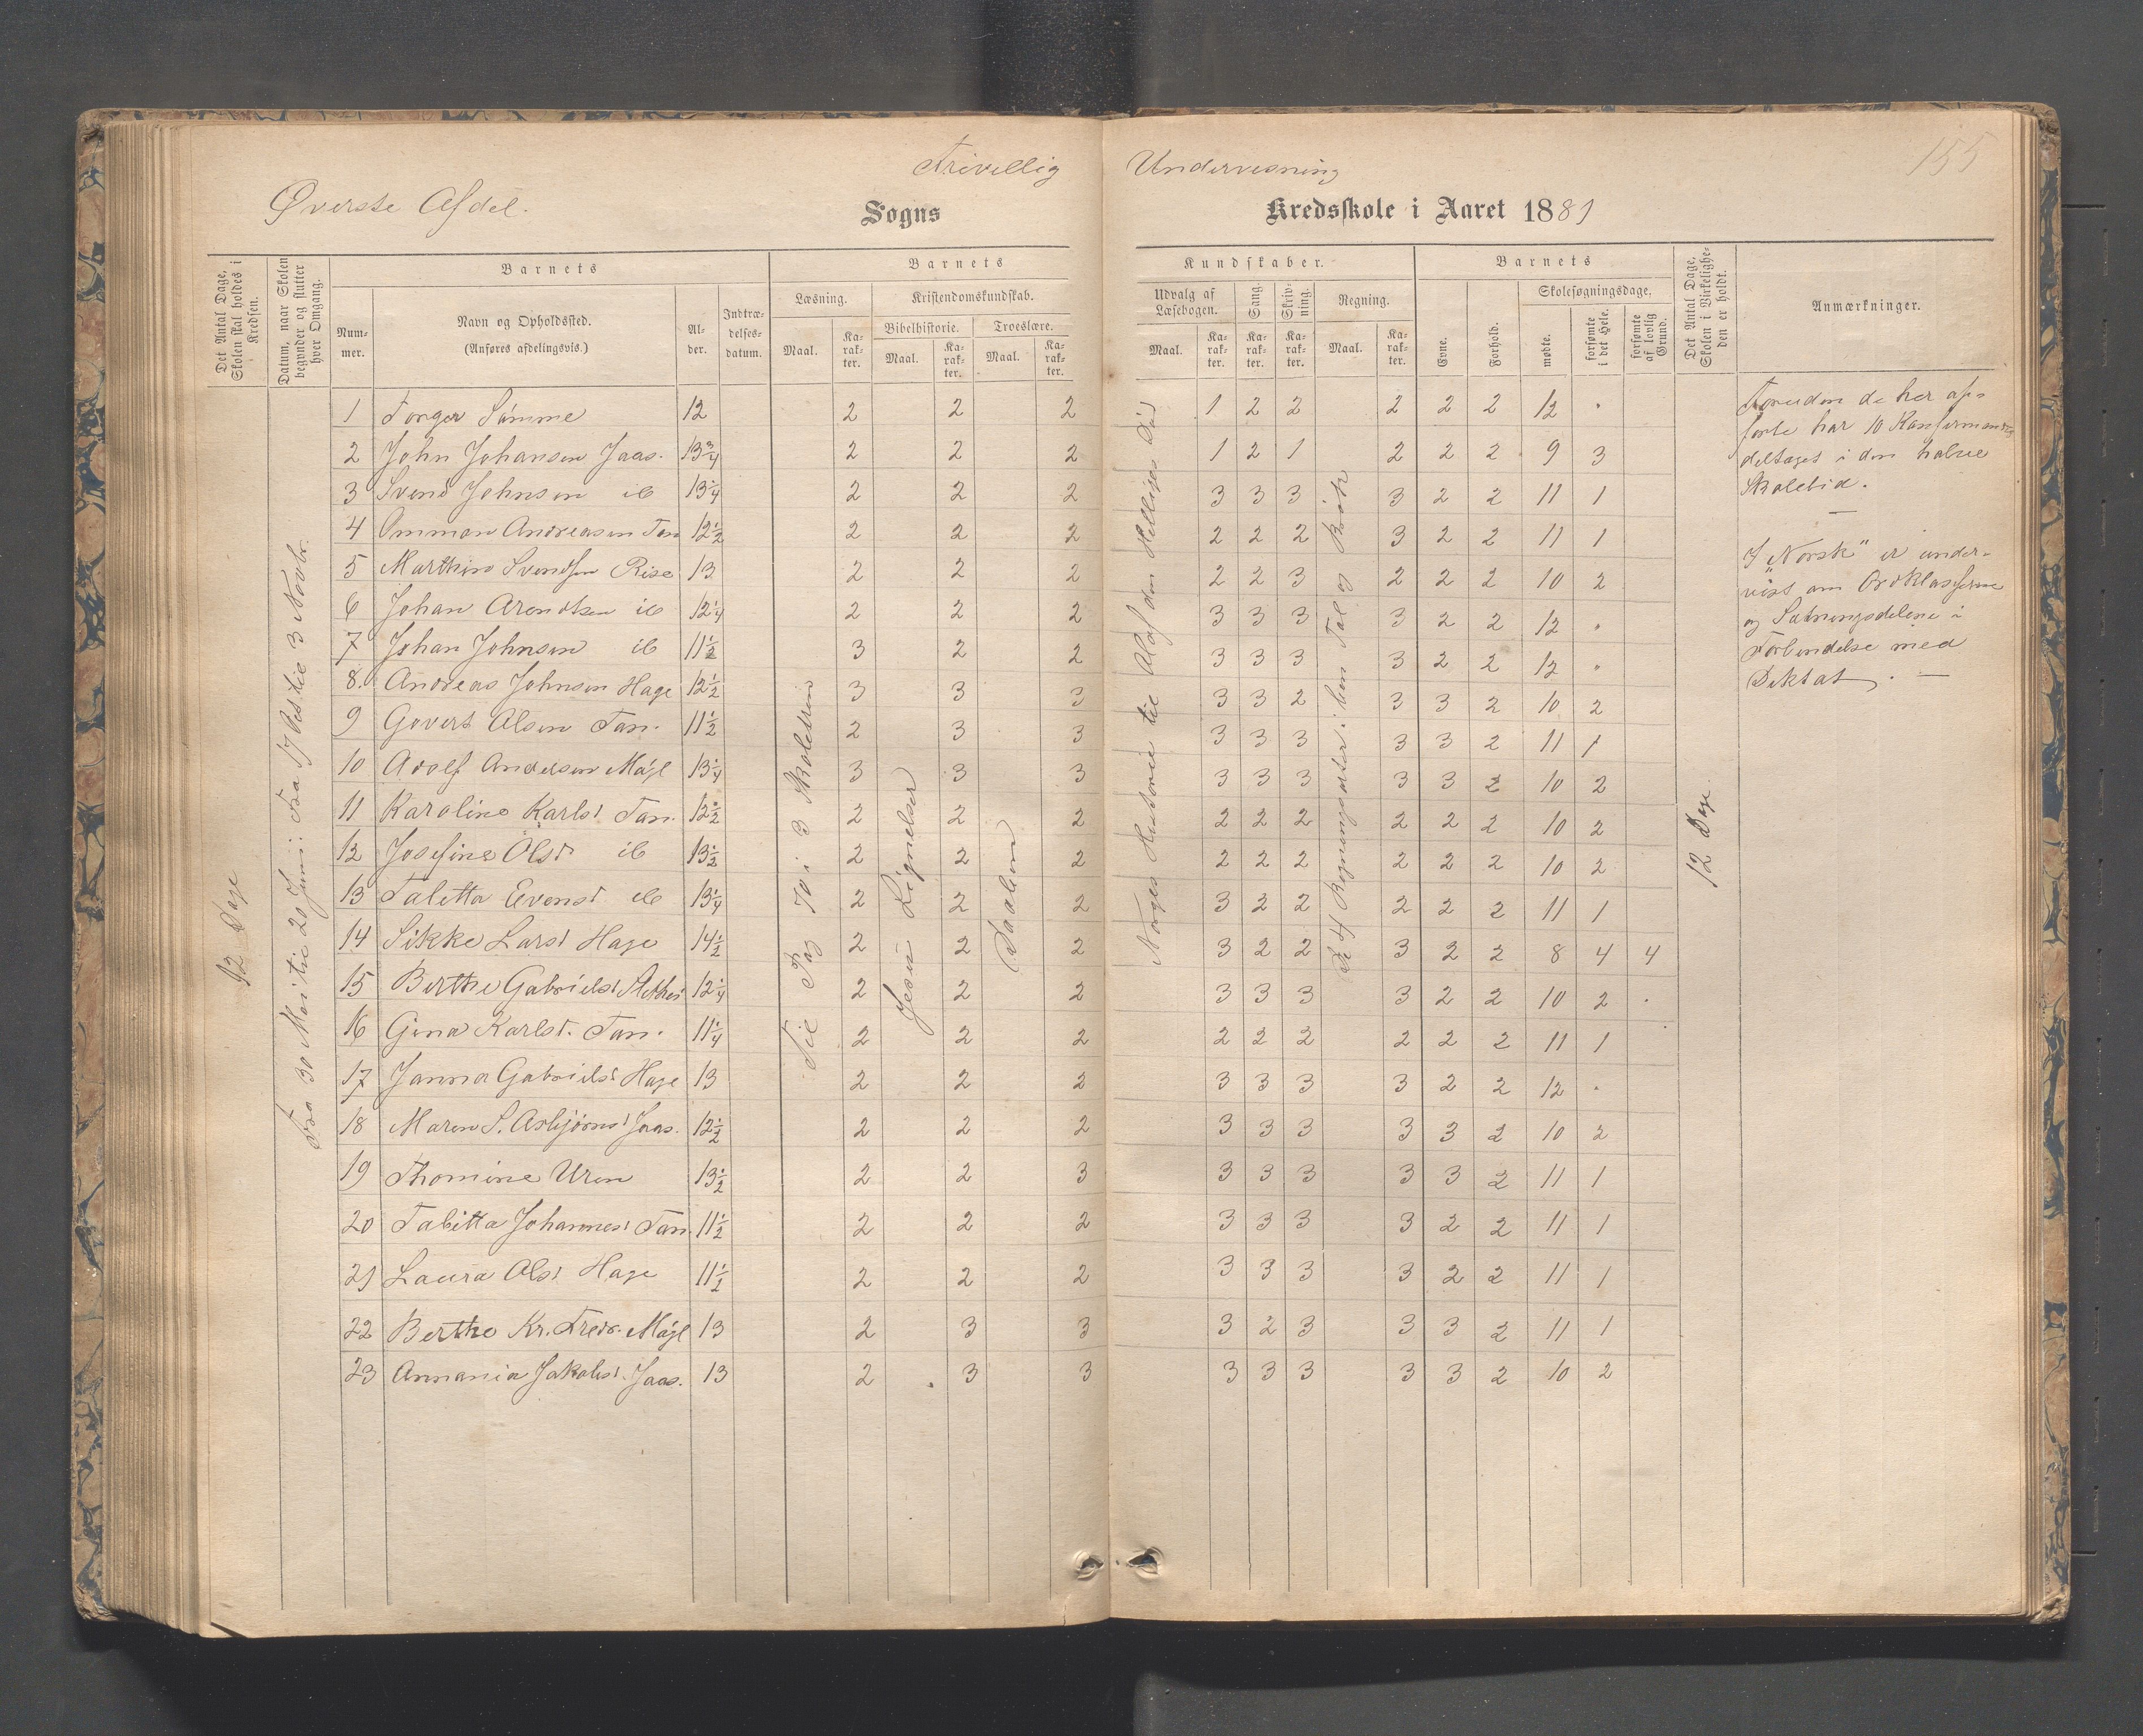 Frivillig Undervisning
155
Øverste Afdel. Sogns Kredsskole i Aaret 1881
Det Antal Dage, Skolen skal holdes i Kredsen.
Datum, naar Skolen begynder og slutter hver Omgang.
Barnets
Num-mer.
Navn og Opholdssted.
(Anføres afdelingsvis.)
Al-der.
Indtræ-delses-datum.
Barnets
Læsning.
Maal.
Ka-rak-ter.
Kristendomskundskab.
Bibelhistorie.
Maal.
Ka-rak-ter.
Troeslære.
Maal.
Ka-rak-ter.
Kundskaber.
Udvalg af Læsebogen.
Maal.
Ka-rak-ter.
Sang.
Ka-rak-ter.
Skriv-ning.
Ka-rak-ter.
Regning.
Maal.
Ka-rak-ter.
Barnets
Evne.
Forhold.
Skolesøgningsdage,
mødte.
forsømte i det Hele.
forsømte af lovlig Grund.
Det Antal Dage, Skolen i Virkelighe-den er holdt.
Anmærkninger.
12 Dage
Fra 30 Mai til 20 Juni: Fra 17 Okt til 3 Novbr.
Til Pag 70 i 3 Skoletrin
Jesu Lignelser
Daaben
Norges Historie til Olaf den Helliges Død
De 4 Regningsarter i hem Tal og Brøk
12 Dage
1 Torger Sømme 12 2 2 2 1 2 2 2 2 2 12 "
2 John Johansen Jaas. 13 3/4 2 2 2 1 2 1 2 2 2 9 3
3 Svend Johnsen ib 13 1/4 2 2 2 3 3 3 3 2 2 11 1
4 Ommon Andreasen Tan 12 1/2 2 2 2 2 2 2 3 2 2 11 1
5 Marthin Svendsen Rise 13 2 2 2 2 2 3 2 2 2 10 2
6 Johan Arentsen ib 12 1/4 2 2 2 3 3 3 3 2 2 12 "
7 Johan Johnsen ib 11 1/2 3 2 2 3 3 3 3 2 2 12 "
8. Andreas Johnsen Hage 12 1/2 3 3 3 3 3 2 3 3 2 10 2
9 Govert Olsen Tan. 11 1/2 2 3 3 3 3 3 3 3 2 11 1
10 Adolf Andersen Møgl 13 1/4 3 3 3 3 3 3 3 3 2 10 2
11 Karoline Karlsd Tan. 12 1/2 2 2 2 2 2 2 2 2 2 10 2
12 Josefine Olsd ib 13 1/2 2 2 2 2 2 2 2 2 2 10 2
13 Talitta Evensd ib 13 1/4 2 2 2 3 2 2 2 2 2 11 1
14 Sikke Larsd Hage 14 1/2 2 2 2 3 2 2 3 2 2 8 4 4
15 Berthe Gabrielsd 12 1/4 2 2 2 3 3 3 3 2 2 10 2 .
16 Gina Karlsd. Tan. 11 1/4 2 2 2 2 2 2 2 2 2 11 1
17 Janna Gabrielsd Hage 13 2 2 2 3 3 3 3 2 2 12 "
18 Maren S. Asbjørnsd Jaas. 12 1/2 2 2 2 3 3 3 3 3 2 10 2
19 Thomine Uren 13 1/2 2 2 3 3 3 3 3 3 2 11 1
20 Tabitta Johannesd Tan. 11 1/2 2 2 2 3 3 3 3 2 2 11 1
21 Laura Olsd Hage 11 1/2 2 2 2 3 3 3 3 2 2 11 1
22 Berthe Kr. Fredr. Møgl 13 2 3 3 3 2 3 3 3 2 11 1
23 Annania Jakobsd. Jaas. 13 2 3 3 3 3 3 3 3 2 10 2
Foruden de her op-
førte har 10 Konfirmander
deltaget i den halve
Skoletid.
I "Norsk" er under-
vist om Ordklasserne
og Sætningsdelene i
Forbindelse med
Diktat.